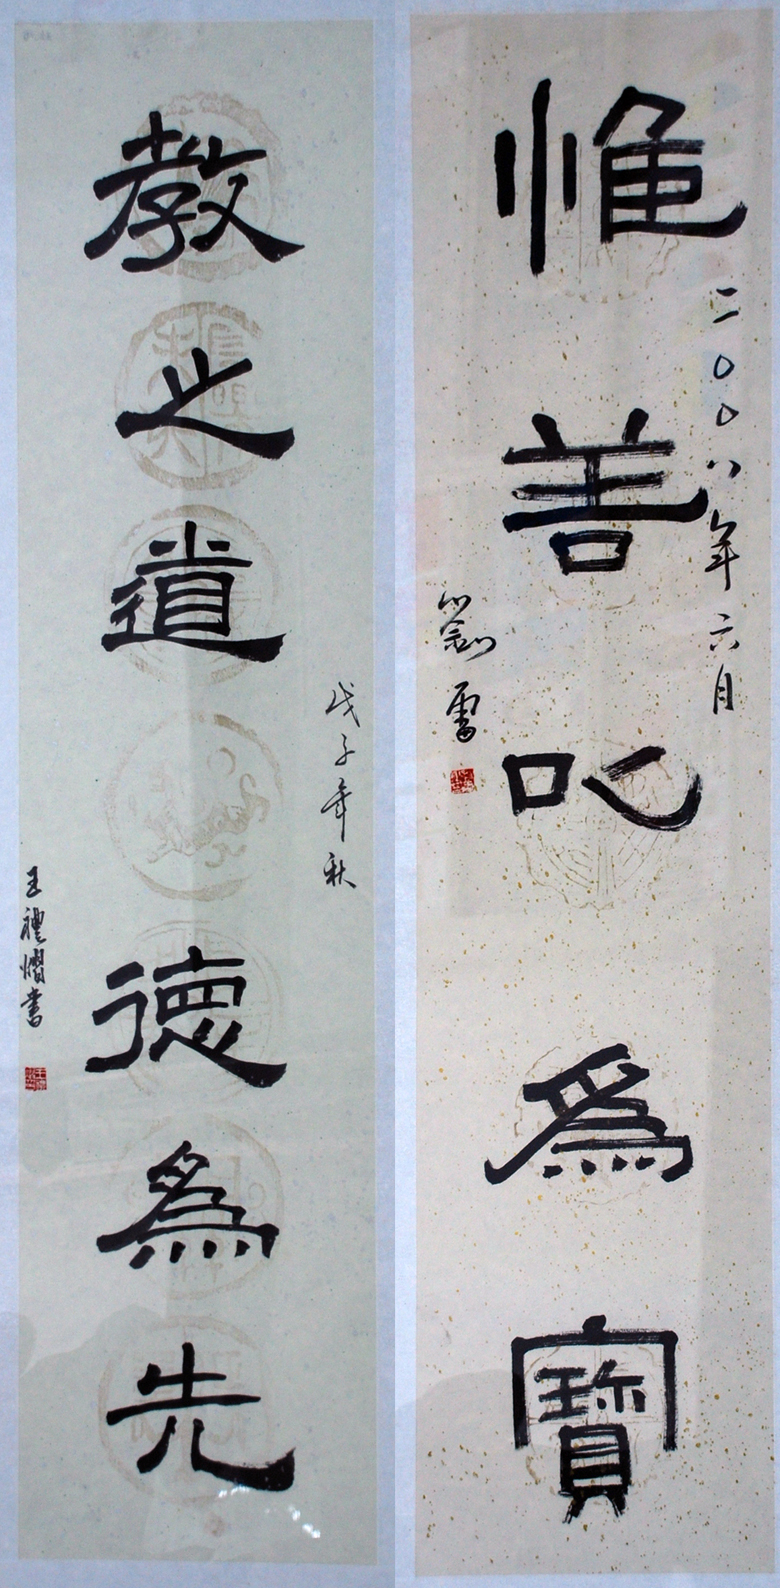 惟善以爲寶
二〇〇八年六月
教之道德爲先
戊子年秋
王禮慴書